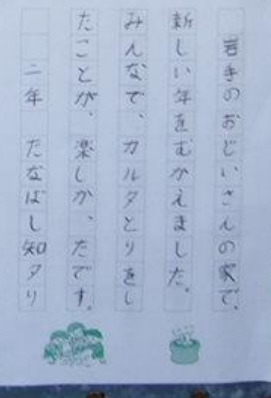 岩手のおじいさんの家で、
新しい年をむかえました。
みんなで、カルタとりをし
たことが、楽しかったです。
二年 たなばし知夕り